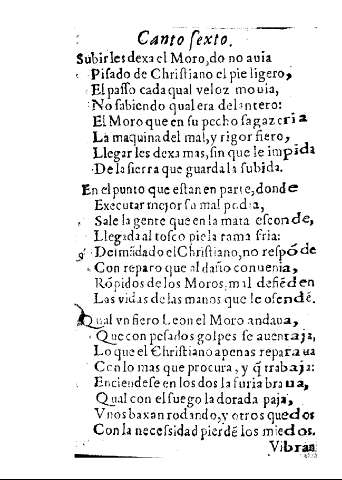 Canto ſexto.
Subirles dexa el Moro, do no auia
Piſado de Chriſtiano el pie ligero,
El paſſo cada qual veloz mouia,
No ſabiendo qual era delantero:
El Moro que en ſu pecho ſagazeria
La maquina del mal, y rigor fiero,
Llegar les dexa mas, ſin que le impida
De la ſierra que guarda la ſubida.
En el punto que eſtan en parte, donde
Executar mejor ſu mal podia,
Sale la gente que en la mata eſconde,
Llegada al toſco pie la rama fria:
Deſmãdado el Chriſtiano, no reſpõde
Con reparo que al daño conuenia,
Rõpidos de los Moros, mal defiẽden
Las vidas de las manos que le ofendẽ.
Qual vn fiero Leon el Moro andaua,
Que con peſados golpes ſe auentaja,
Lo que el Chriſtiano apenas reparaua
Con lo mas que procura, y q̃ trabaja:
Enciendeſe en los dos la furia braua,
Qual con el fuego la dorada paja,
Vnos baxan rodando, y otros quedos
Con la neceſsidad pierdẽ los miedos.
Vibran